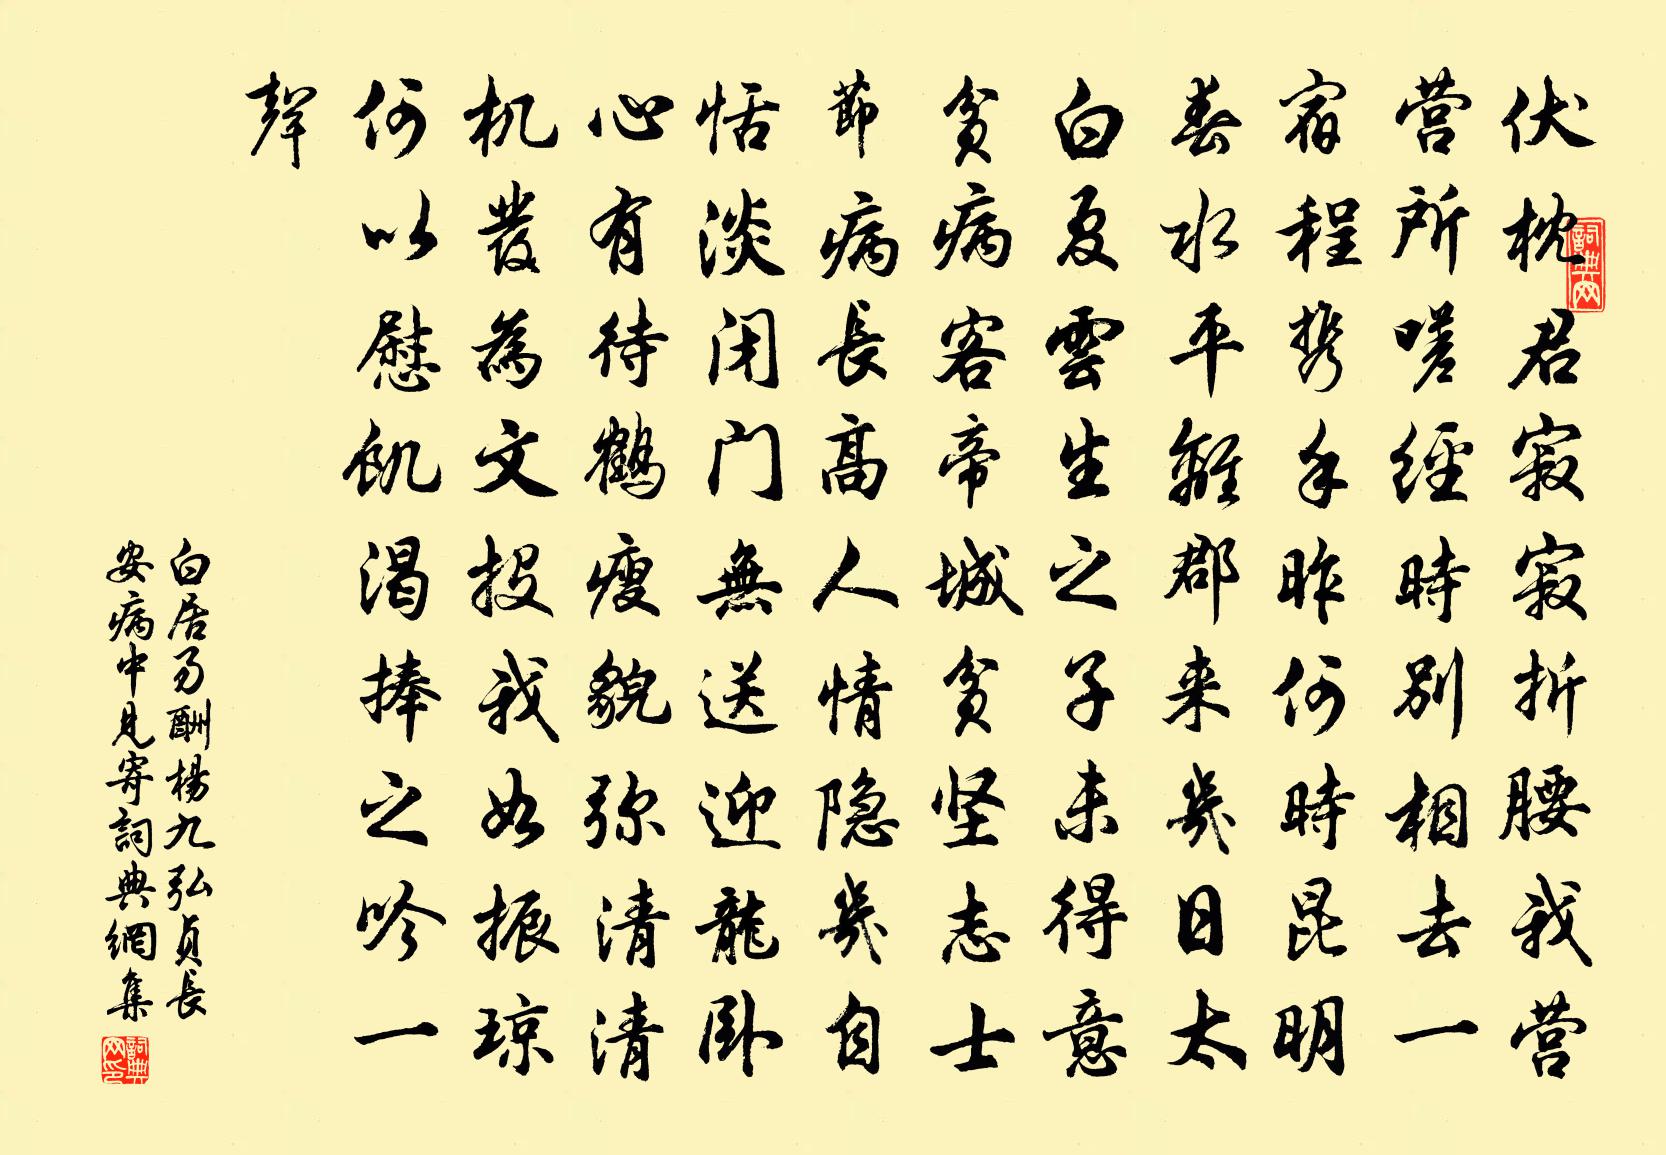 伏枕君寂寂折腰我营
营所嗟經時别相去一
宿程携手昨何時昆明
春水平離郡来幾日太
白夏雲生之子未得意
貧病客帝城貧坚志士
節病長高人情隐幾自
恬淡闭门無送迎龍卧
心有待鶴瘦貌弥清清
机發為文投我如振琼
何以慰飢渴捧之吟一
聲
白居易酬楊九弘貞長
安病中見寄詞典網集
詞典网
詞典网印